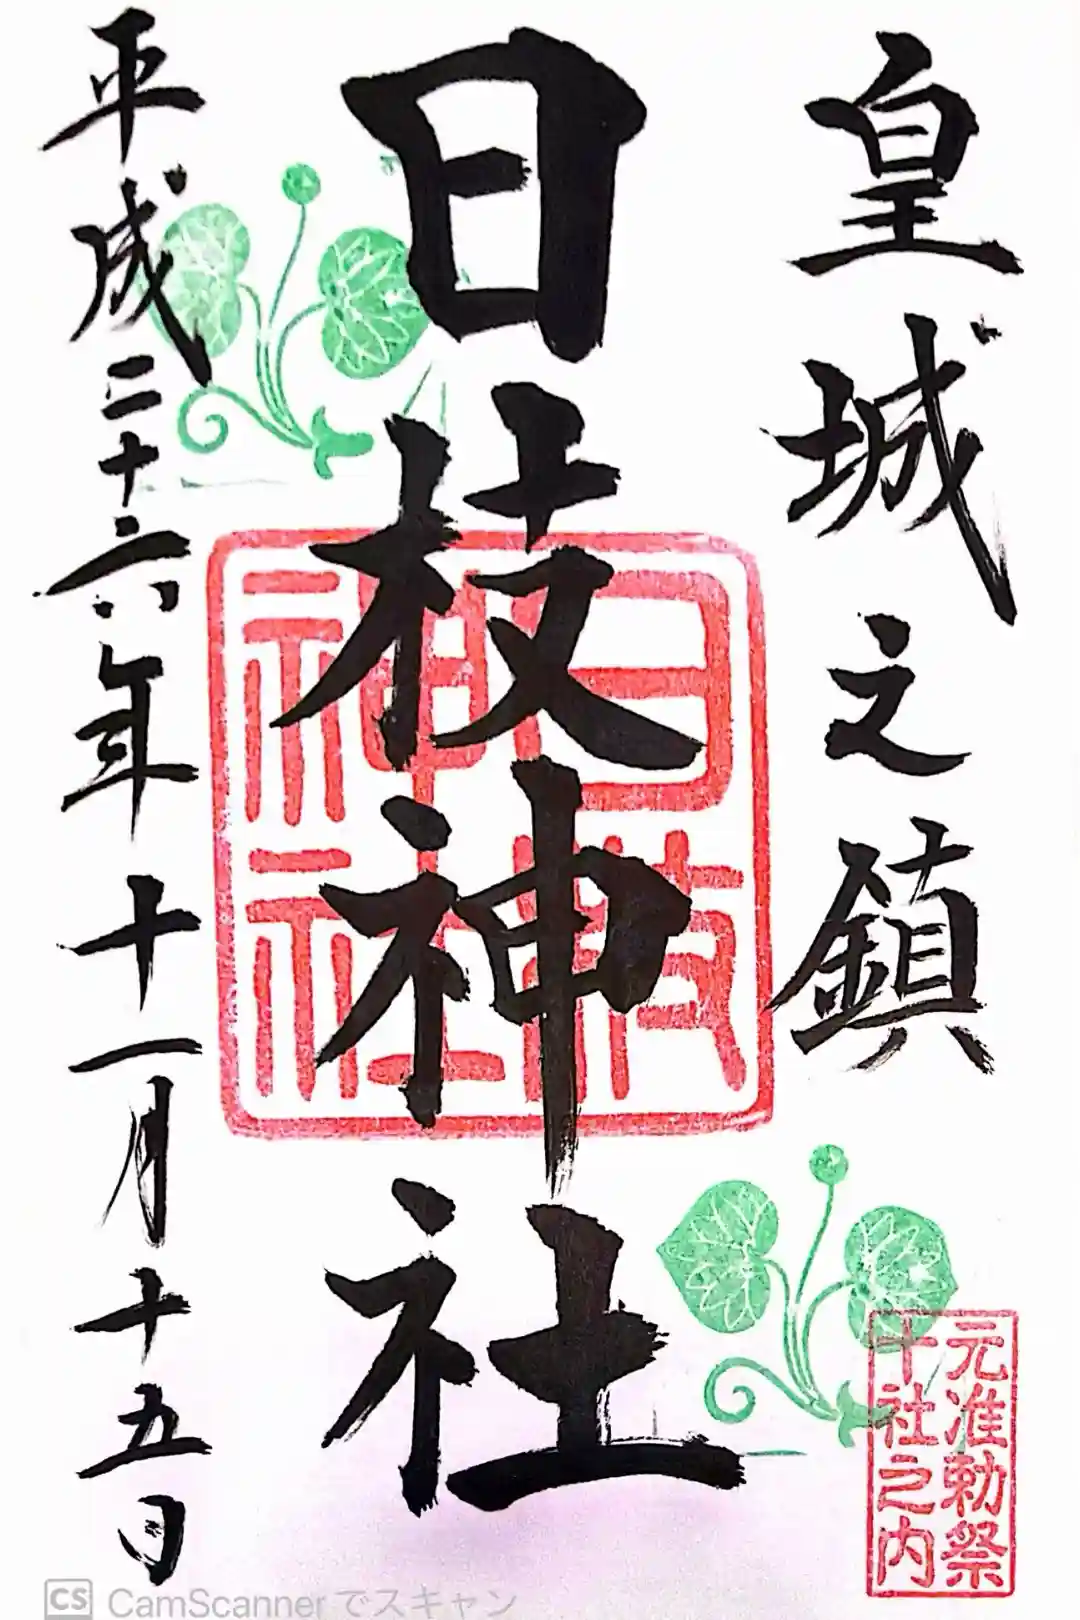 皇城之鎮
日枝神社
平成二十六年十一月十五日
日枝
神社
元准勅祭
十社之内
CS CamScanner でスキャン